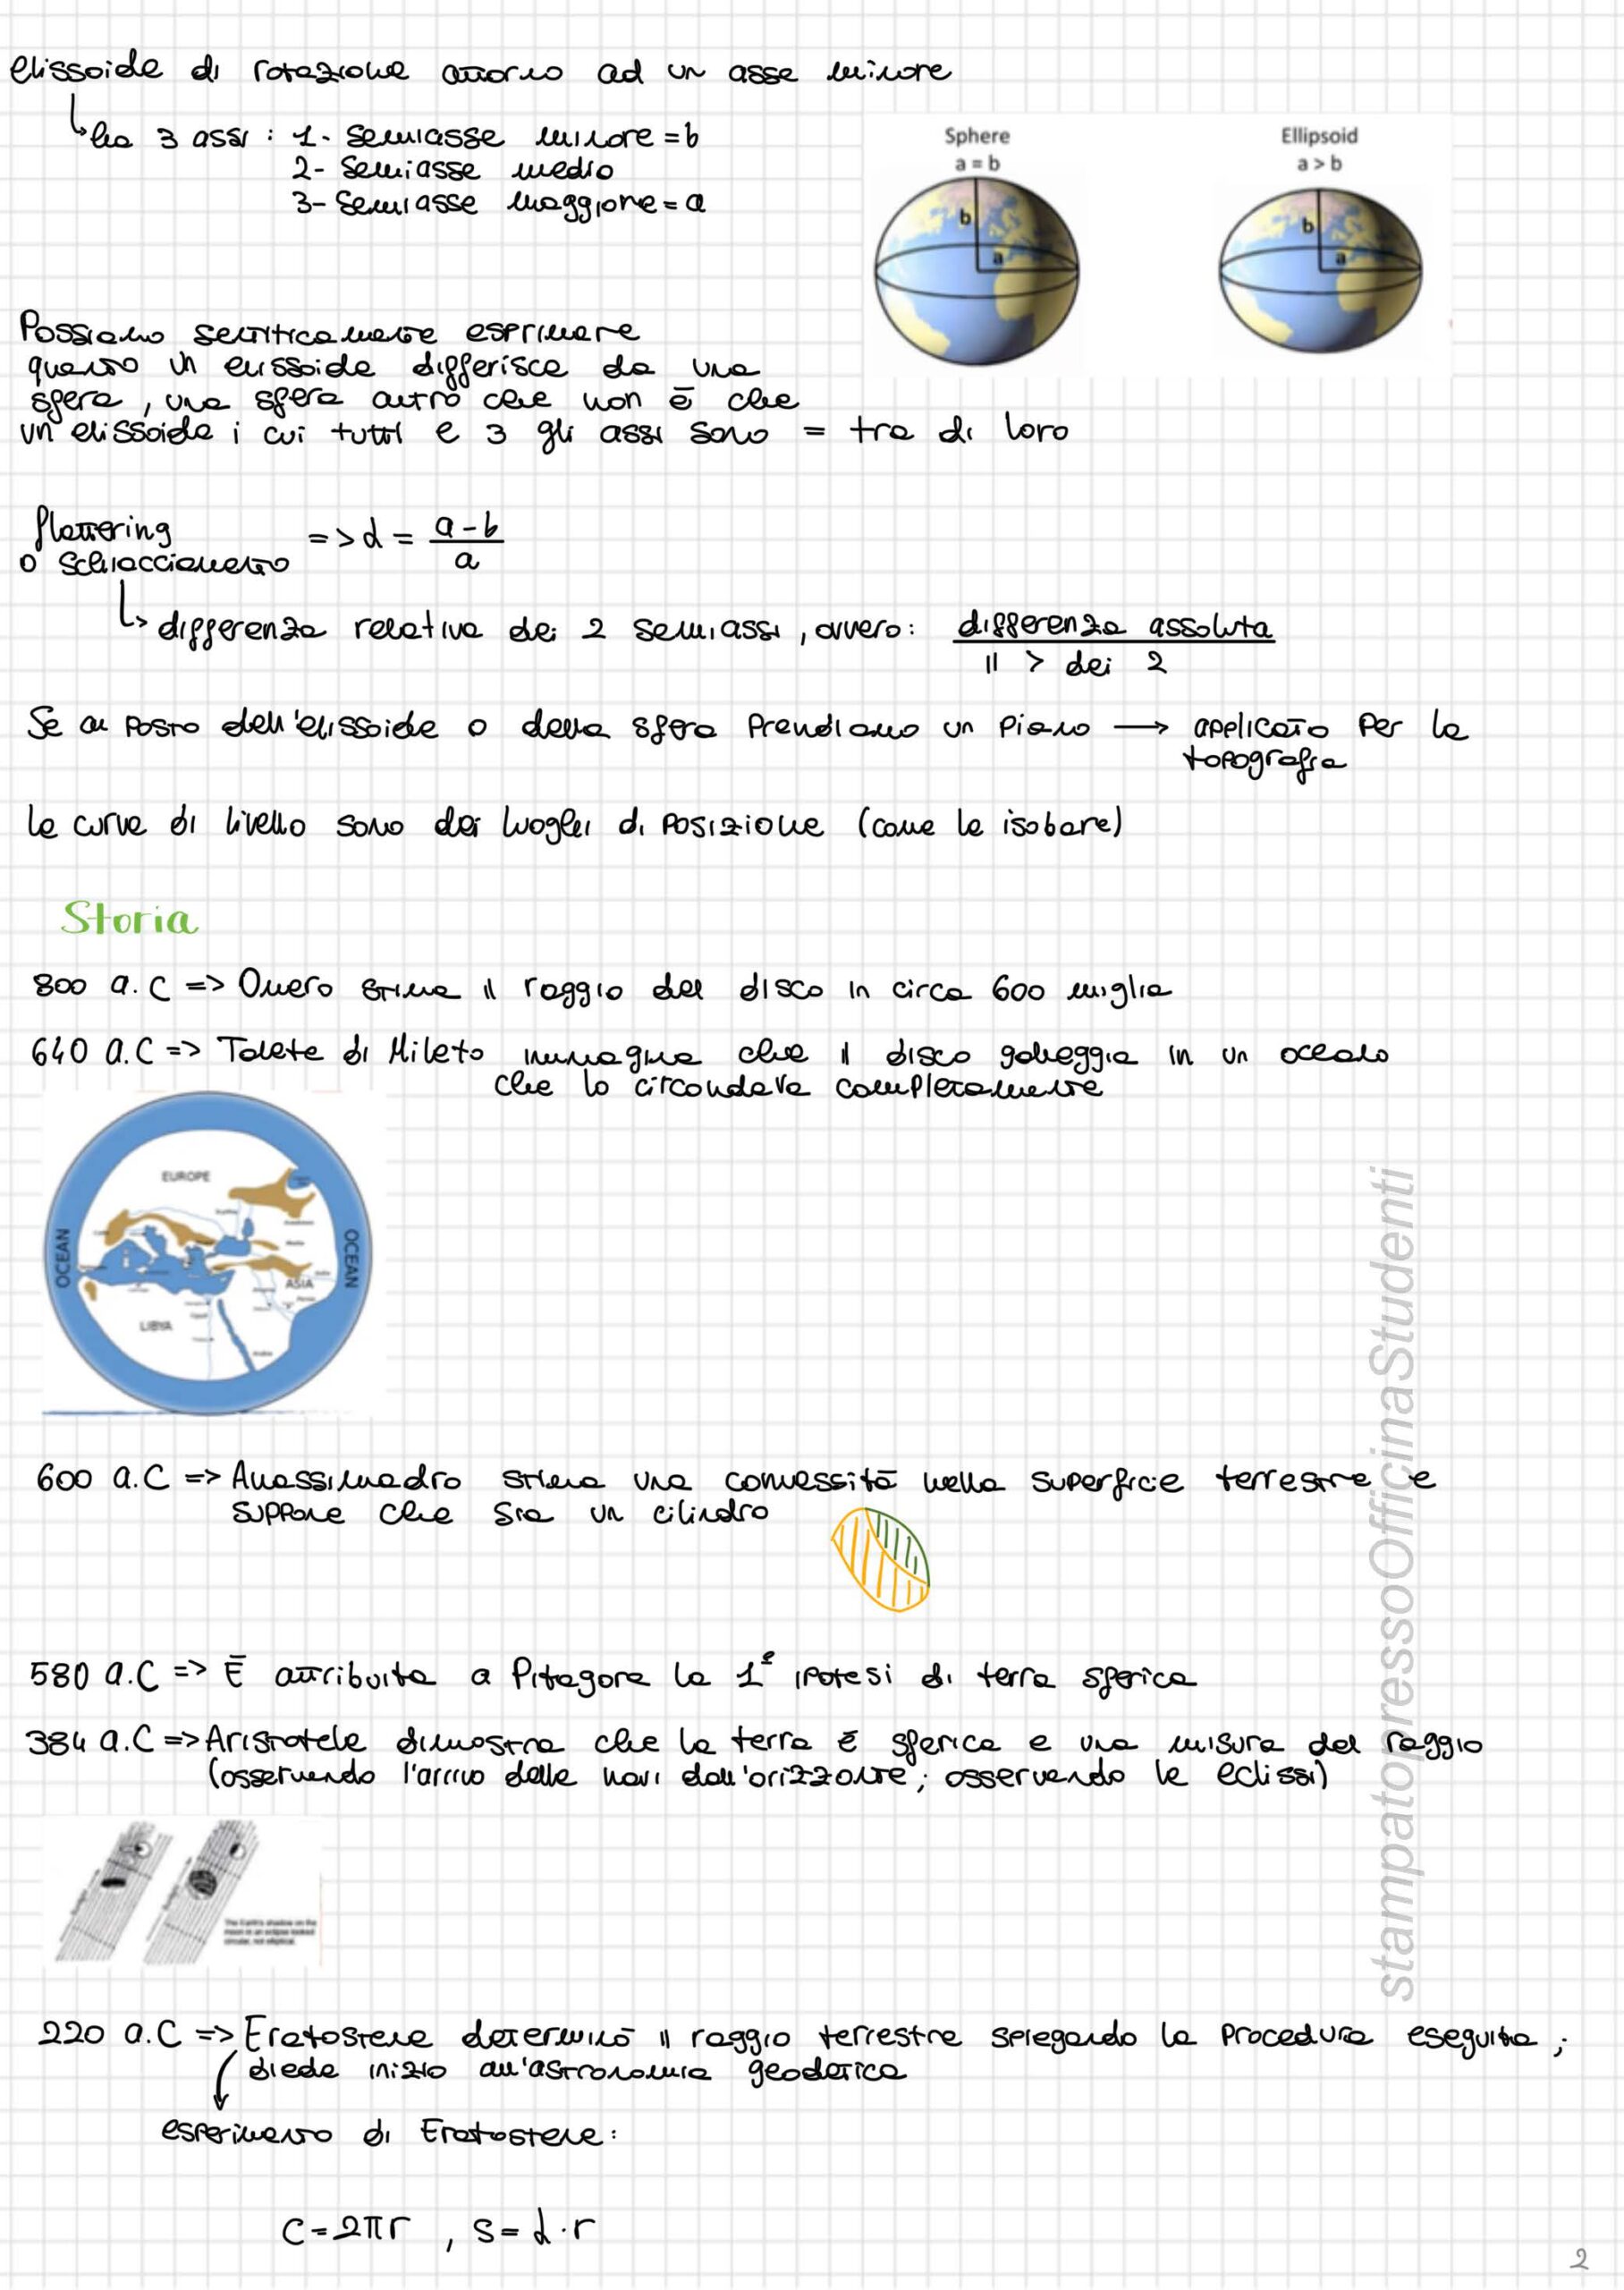 elissoide di rotazione attorno ad un asse minore
↳ ha 3 assi : 1- Semiasse minore = b
2- Semiasse medio
3- Semiasse maggiore = a
Sphere
a = b
b
a
Ellipsoid
a > b
b
a
Possiamo sentiticamente esprimere
quanto un elissoide differisce da una
sfera, una sfera altro che non è che
un elissoide i cui tutti e 3 gli assi sono = tra di loro
flattering
o schiacciamento => α = (a-b)/a
↳ differenza relativa dei 2 semiassi, ovvero: differenza assoluta / il > dei 2
Se al posto dell'elissoide o della sfera prendiamo un piano → applicato per la
topografia
le curve di livello sono dei luoghi di posizione (come le isobare)
Storia
800 a.C => Omero stima il raggio del disco in circa 600 miglia
640 a.C => Talete di Mileto immagina che il disco galleggia in un oceano
che lo circondava completamente
EUROPE
OCEAN
OCEAN
ASIA
LIBYA
600 a.C => Anassimadro stima una convessità nella superficie terrestre e
suppone che sia un cilindro
580 a.C => È attribuita a Pitagora la 1ª ipotesi di terra sferica
384 a.C => Aristotele dimostra che la terra è sferica e una misura del raggio
(osservando l'arrivo delle navi dall'orizzonte; osservando le eclissi)
The Earth's shadow on the
moon in an eclipse looked
circular, not elliptical.
220 a.C => Eratostene determinò il raggio terrestre spiegando la procedura eseguita ;
diede inizio all'astronomia geodetica
esperimento di Eratostene:
C = 2πr , S = α · r
2
stampatopressoOfficinaStudenti